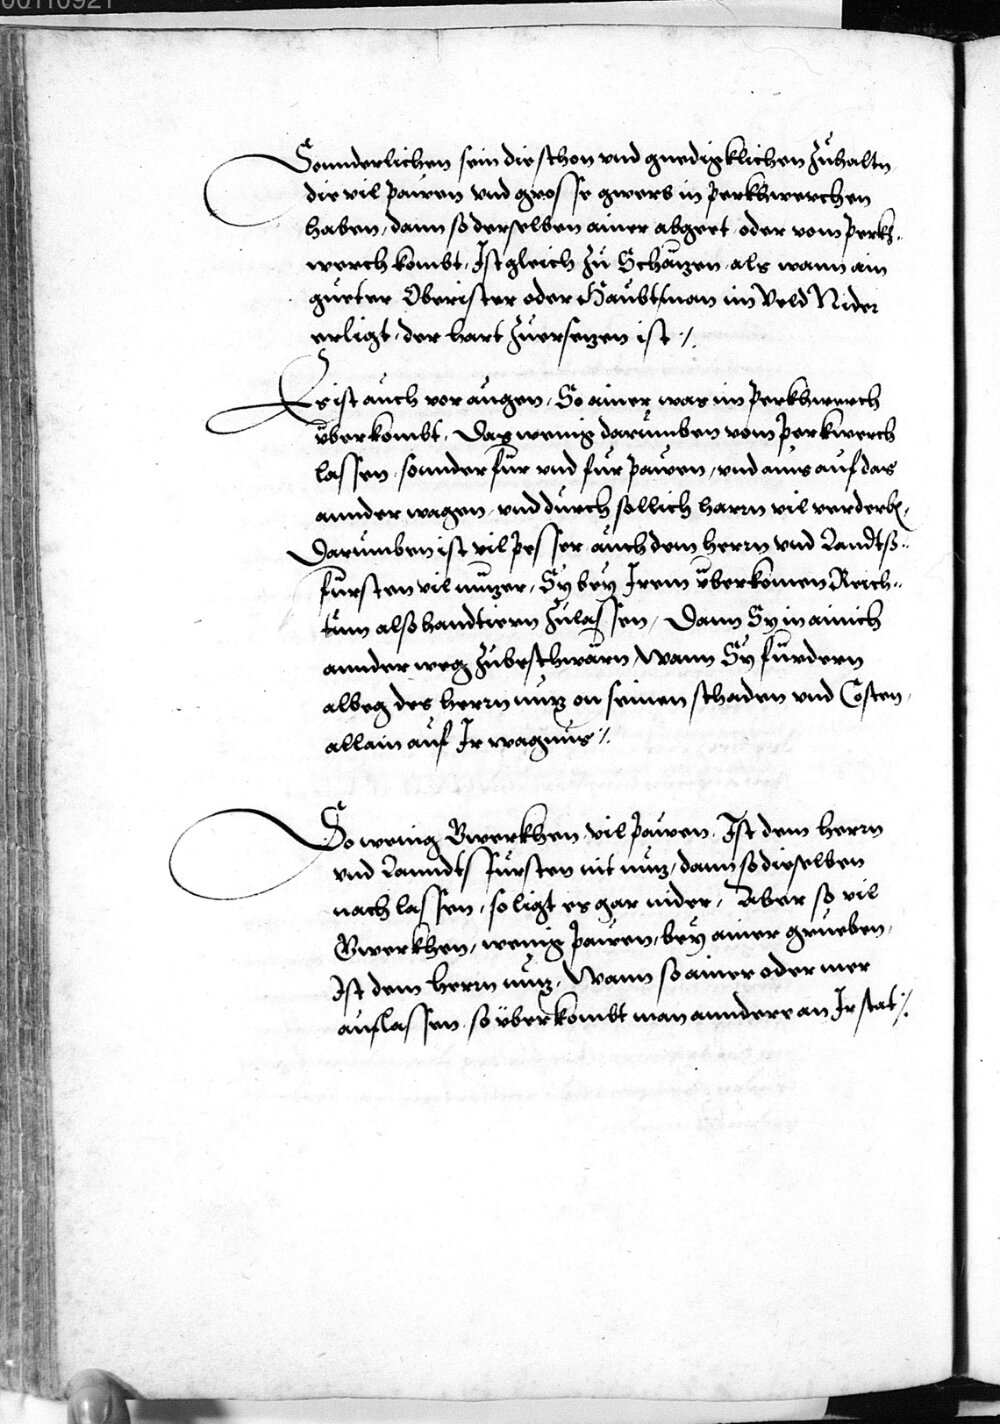 00110921
Sonnderlichen sein die schon vnd gnedigklichen zuhaltn
die vil pawen vnd grosse gwerb in perkhwerchen
haben, dann so derselben ainer abgeet oder vom perkh-
werch kombt, Ist gleich zu Schäzen als wann ain
gueter Oberister oder Haubtman im Veld Nider
erligt, der hart zuersezen ist /.
Es ist auch vor augen, So ainer was im perkhwerch
vberkombt, Das wenig darumben vom perkwerch
lassen, sonnder für vnd für pawen, vnd ains auf das
annder wagen, vnd durch sollich harrn vil verderbn,
Darumben ist vil pesser auch dem herrn vnd Landts-
fürsten vil nuzer, Sy bey Irem vberkomen Reich-
tum also handtiern zulassen, Dann Sy in ainich
annder weg zubeschwärn, Wann Sy fürdern
albeg des herrn nuz on seinen schaden vnd Costen,
allain auf Ir wagnus /.
So wenig Gwerkhen vil pawen, Ist dem herrn
vnd Lanndts fürsten nit nuz, dann so dieselben
nach lassen, so ligt es gar nider, Aber so vil
Gwerkhen, wenig pawen, bey ainer grueben,
Ist dem herrn nuz, Wann so ainer oder mer
auflassen, so vberkombt man anndere an Ir stat /.